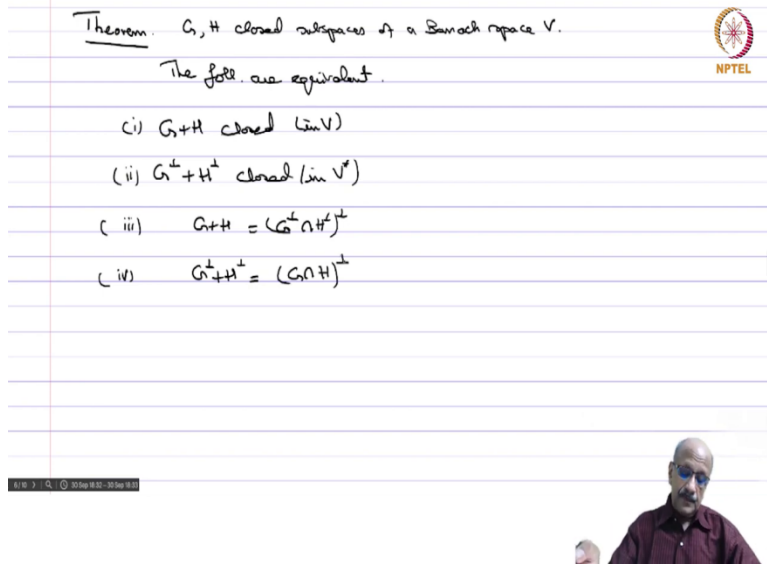 Theorem. G, H closed subspaces of a Banach space V.
NPTEL
The foll. are equivalent.
(i) G+H closed (in V)
(ii) G^⊥ + H^⊥ closed (in V*)
(iii) G+H = (G^⊥ ∩ H^⊥)^⊥
(iv) G^⊥ + H^⊥ = (G∩H)^⊥
6/10 30 Sep 18:32 - 30 Sep 18:33